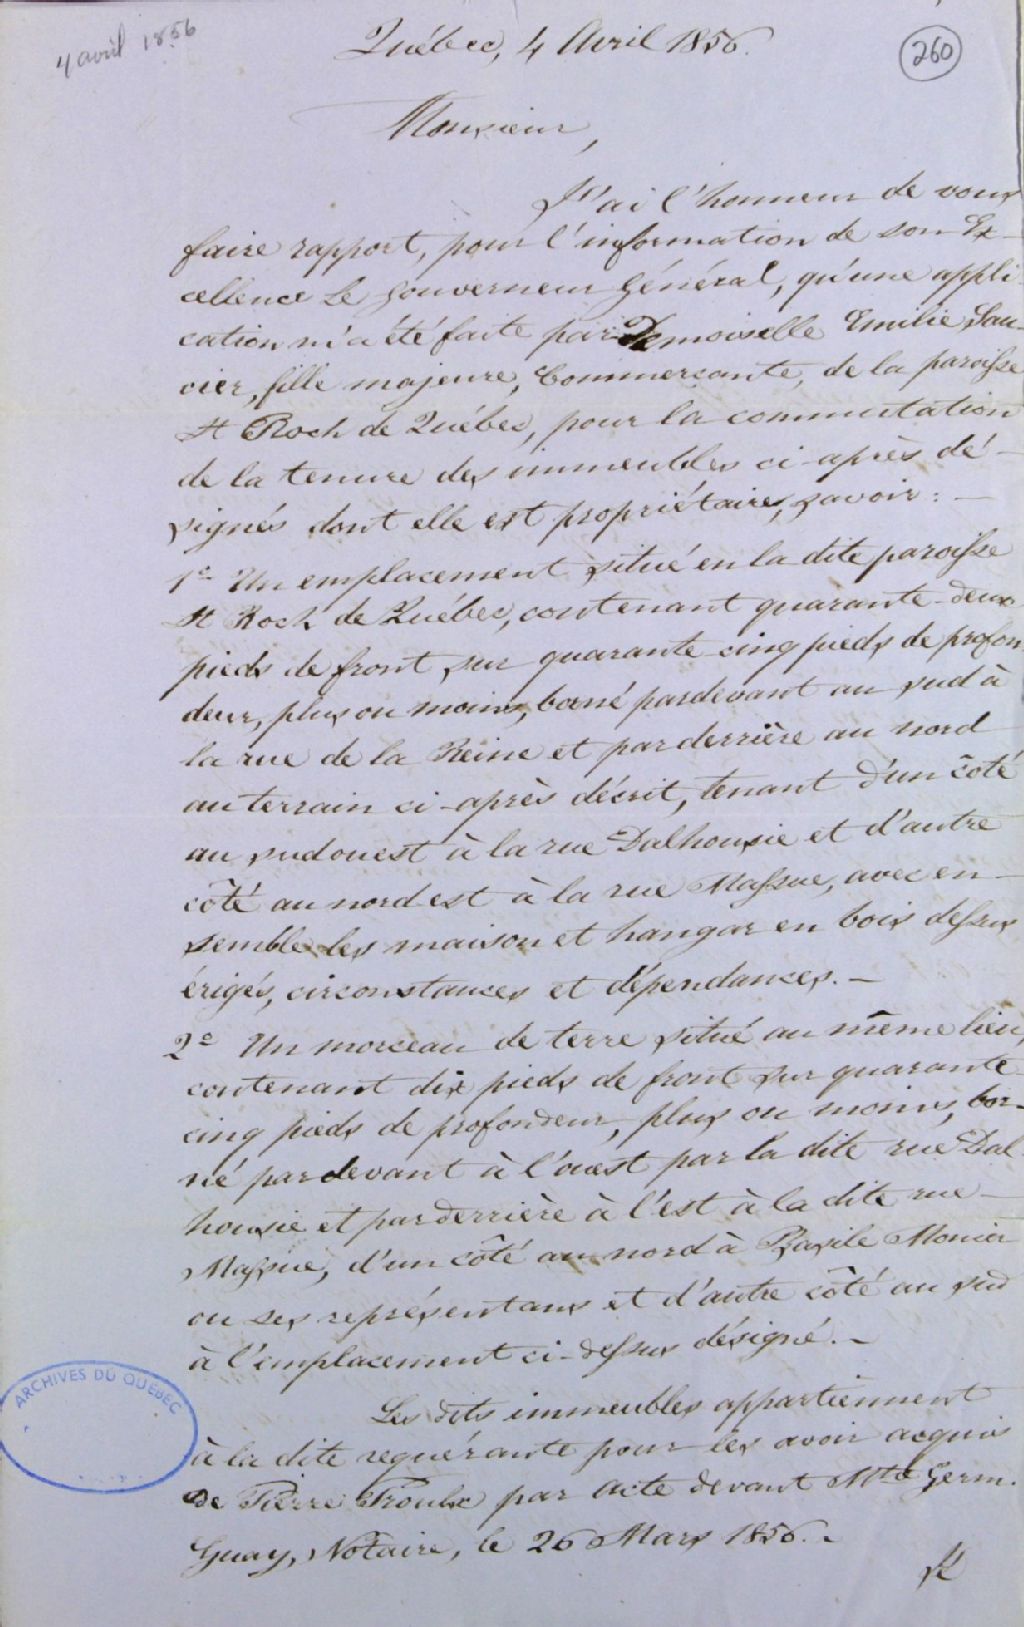 4 avril 1856
Québec, 4 Avril 1856.
260
Monsieur,
J'ai l'honneur de vous
faire rapport, pour l'information de son Ex-
cellence Le Gouverneur Général, qu'une appli-
cation m'a été faite par Demoiselle Emilie Sau-
cier, fille majeure, Commerçante, de la paroisse
St Roch de Québec, pour la commutation
de la tenure des immeubles ci-après dé-
signés dont elle est propriétaire, savoir: -
1o Un emplacement situé en la dite paroisse
St Roch de Québec, contenant quarante-deux
pieds de front sur quarante cinq pieds de profon-
deur, plus ou moins, borné pardevant au sud à
la rue de la Reine et par derrière au nord
au terrain ci-après décrit, tenant d'un côté
au sudouest à la rue Dalhousie et d'autre
côté au nordest à la rue Massue, avec en-
semble les maison et hangar en bois dessus
érigés, circonstances et dépendances. -
2o Un morceau de terre situé au même lieu,
contenant dix pieds de front sur quarante
cinq pieds de profondeur, plus ou moins, bor-
né par devant à l'ouest par la dite rue Dal-
housie et par derrière à l'est à la dite rue
Massue, d'un côté au nord à Basile Monier
ou ses représentans et d'autre côté au sud
à l'emplacement ci-dessus désigné. -
Les dits immeubles appartiennent
à la dite requérante pour les avoir acquis
de Pierre Proulx par acte devant Mtre Germ.
Guay, Notaire, le 26 Mars 1856. -
ARCHIVES DU QUÉBEC